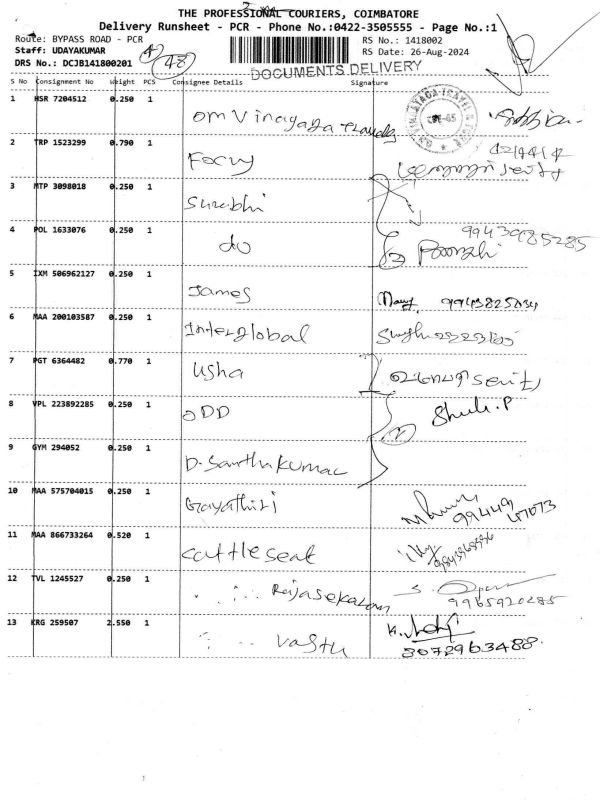 THE PROFESSIONAL COURIERS, COIMBATORE
Delivery Runsheet - PCR - Phone No.:0422-3505555 - Page No.:1
Route: BYPASS ROAD - PCR
RS No.: 1418002
Staff: UDAYAKUMAR
RS Date: 26-Aug-2024
DRS No.: DCJB141800201
48
DOCUMENTS DELIVERY
S No Consignment No Weight PCS Consignee Details Signature
1 HSR 7204512 0.250 1
om Vinayaga travels
2 TRP 1523299 0.790 1
Focus
4214414
3 MTP 3098018 0.250 1
Surabhi
4 POL 1633076 0.250 1
do
5 IXM 506962127 0.250 1
James
9943825034
6 MAA 200103587 0.250 1
Interglobal
7 PGT 6364482 0.770 1
Usha
8 VPL 223892285 0.250 1
ODD
9 GYM 294052 0.250 1
D. Santhakumar
10 MAA 575704015 0.250 1
Gayathiri
99449 47073
11 MAA 866733264 0.520 1
cattleseat
12 TVL 1245527 0.250 1
Rajasekaran
9965920285
13 KRG 259507 2.550 1
Vastu
8072963488